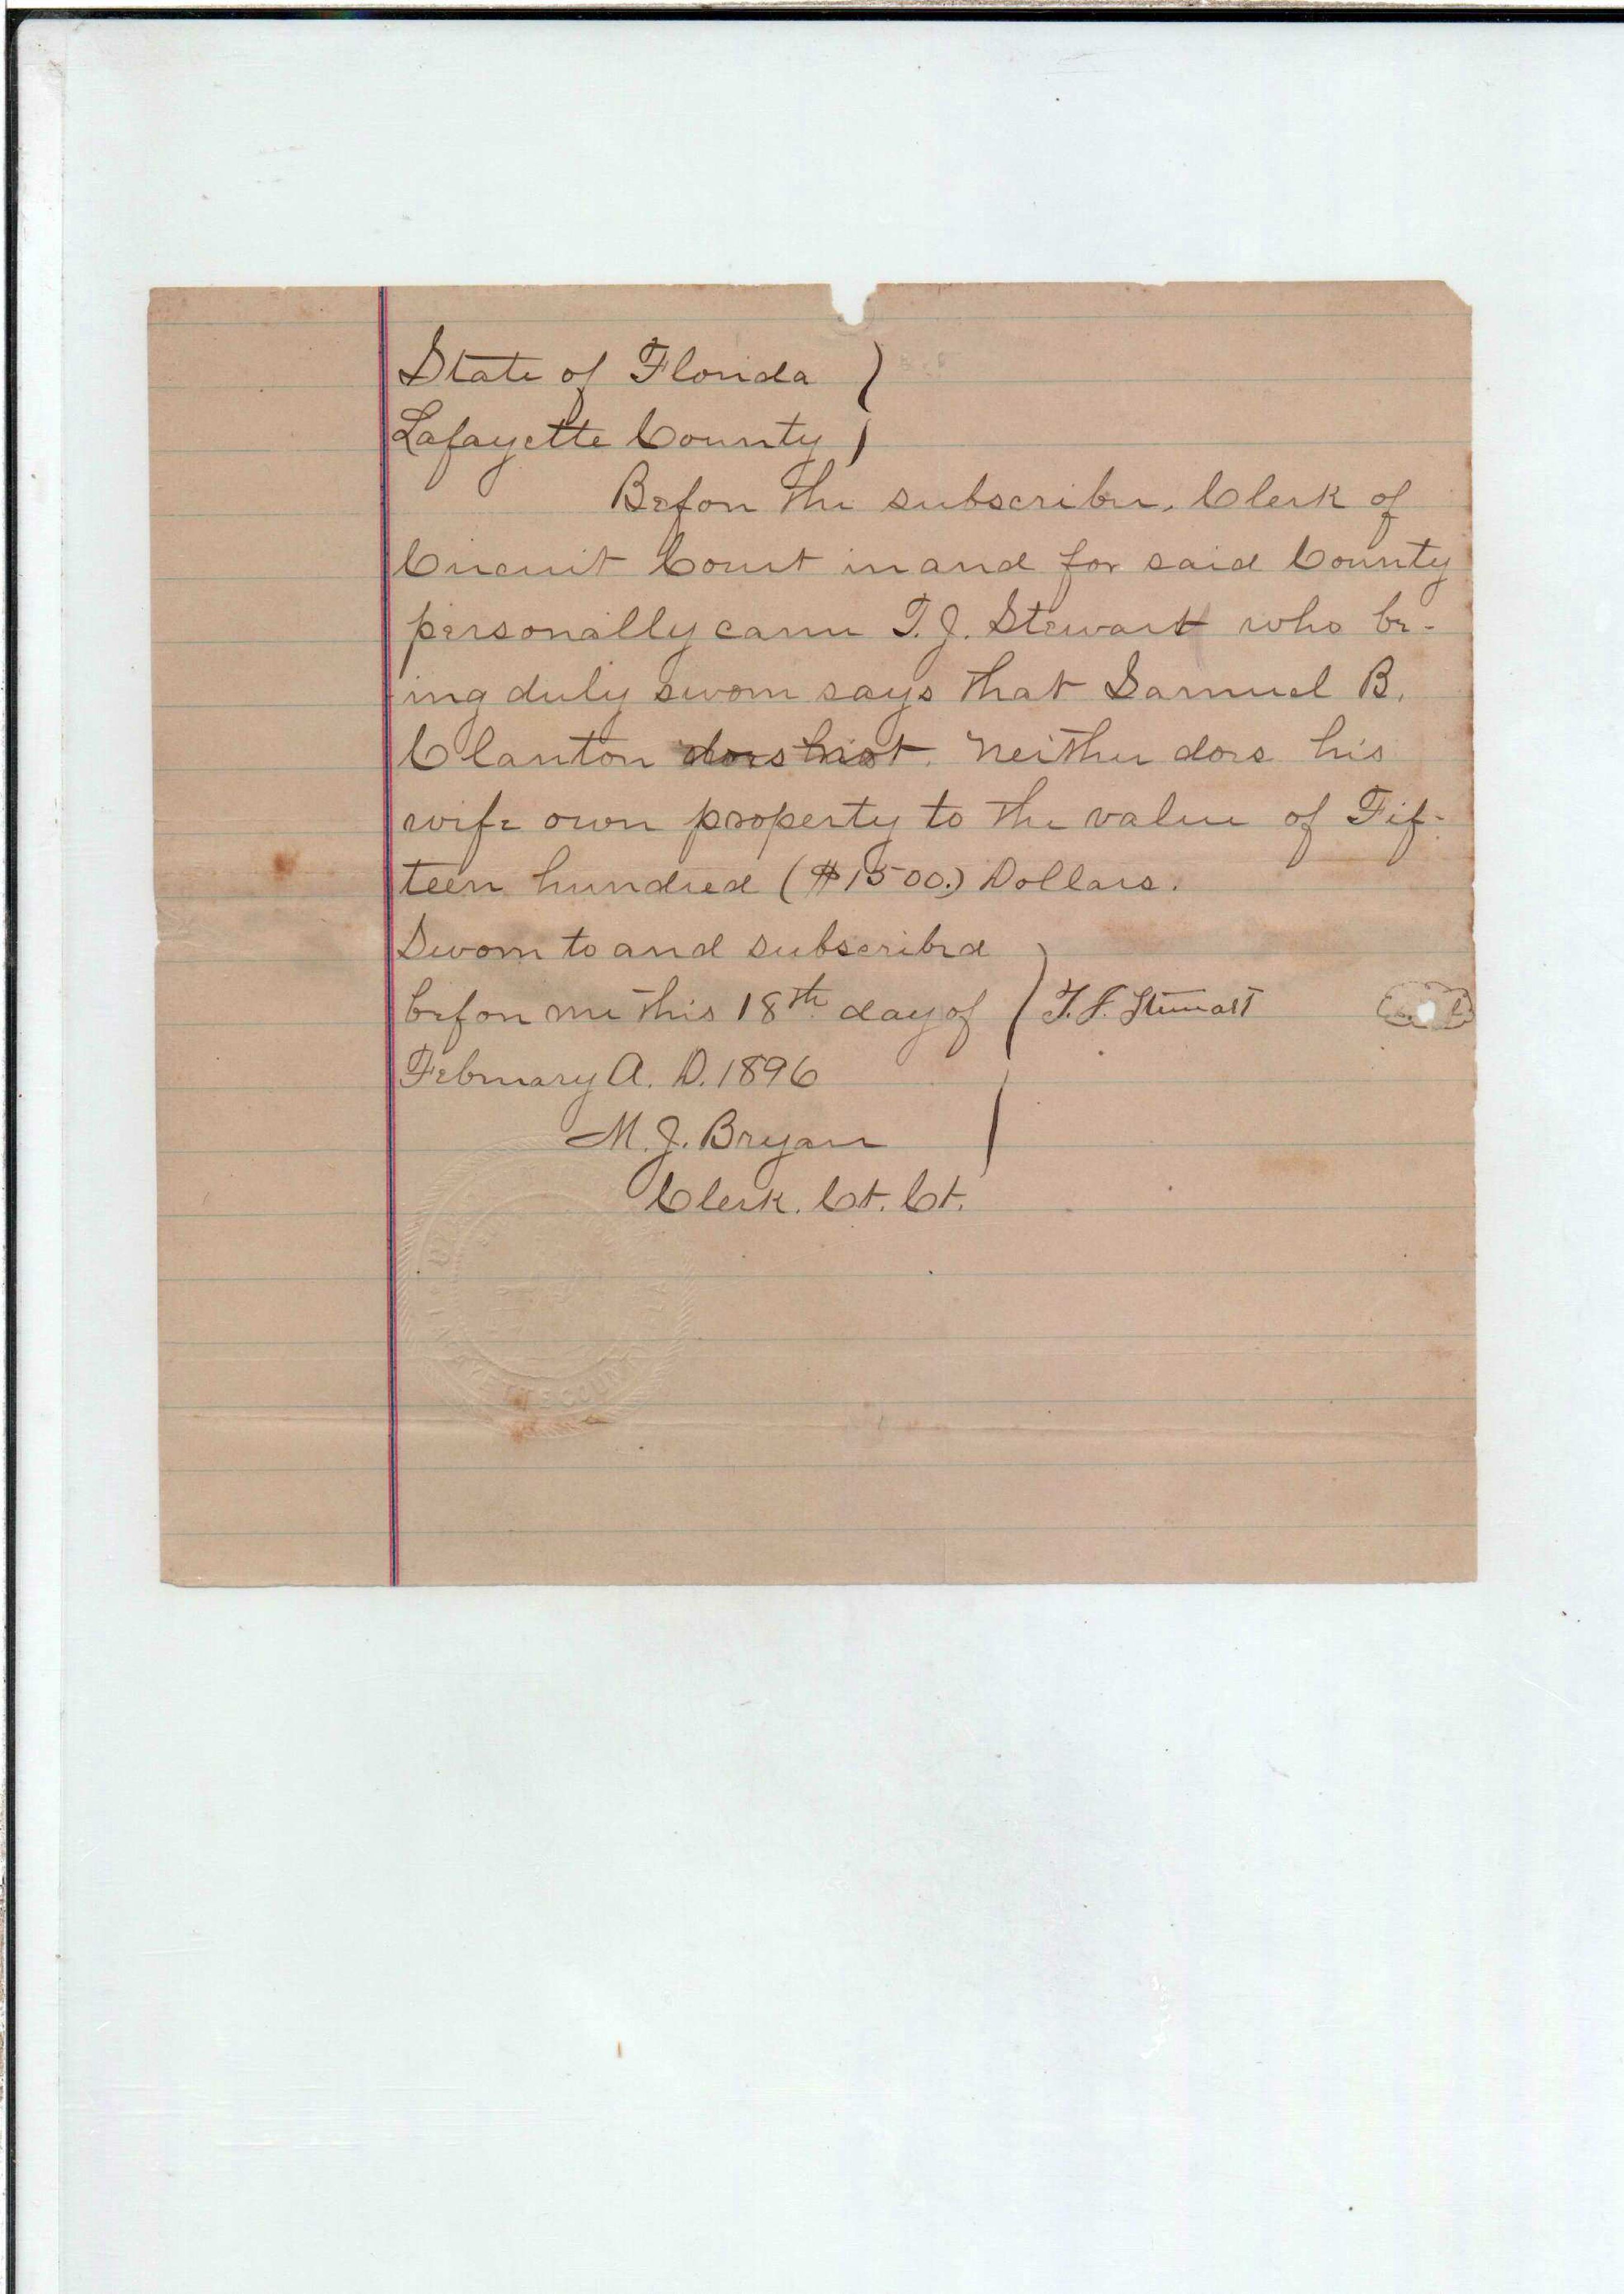 State of Florida )
Lafayette County )
Before the subscriber, Clerk of
Circuit Court in and for said County
personally came T. J. Stewart who be-
ing duly sworn says that Samuel B.
Clanton does not. Neither does his
wife own property to the value of Fif-
teen hundred ($1500.) Dollars.
Sworn to and subscribed
before me this 18th day of ) T. J. Stewart
February A. D. 1896
M. J. Bryan
Clerk. Ct. Ct.
COUN